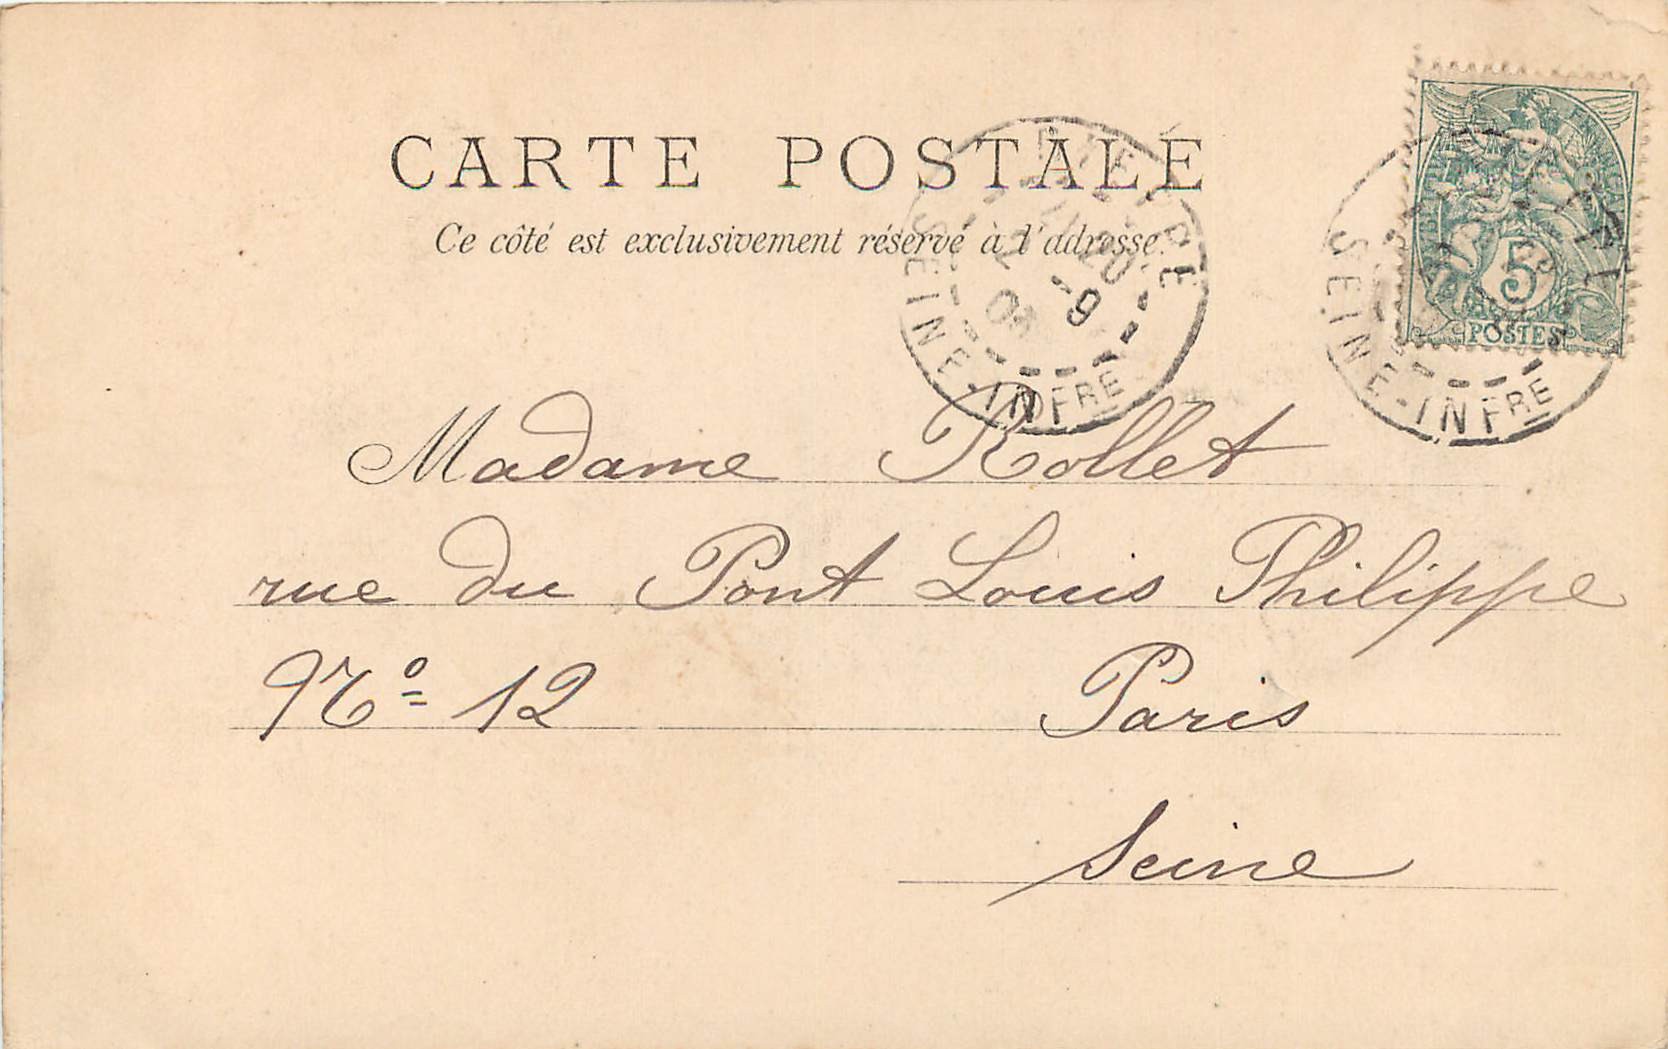 CARTE POSTALE
Ce côté est exclusivement réservé à l'adresse.
SEINE-INFRE
5
POSTES
SEINE-INFRE
Madame Rollet
rue du Pont Louis Philippe
No 12 Paris
Seine